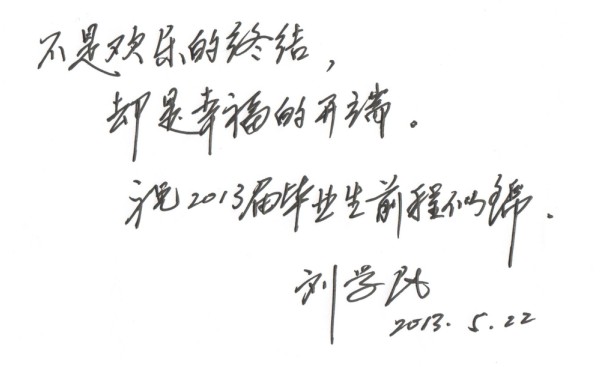 不是欢乐的终结，
却是幸福的开端。
祝2013届毕业生前程似锦.
刘学民
2013.5.22